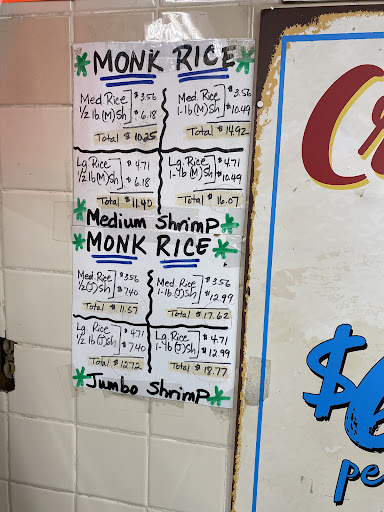 MONK RICE
Med. Rice $3.56
1/2 lb (M) Sh $6.18
Total $10.25
Med. Rice $3.56
1-lb (M) Sh $10.49
Total $14.92
Lg. Rice $4.71
1/2 lb (M) Sh $6.18
Total $11.40
Lg. Rice $4.71
1-lb (M) Sh $10.49
Total $16.07
Medium Shrimp
MONK RICE
Med. Rice $3.56
1/2 (J) Sh $7.40
Total $11.57
Med. Rice $3.56
1-lb. (J) Sh $12.99
Total $17.62
Lg. Rice $4.71
1/2 lb (J) Sh $7.40
Total $12.72
Lg. Rice $4.71
1-lb (J) Sh $12.99
Total $18.77
Jumbo Shrimp
Cr
$6
pe